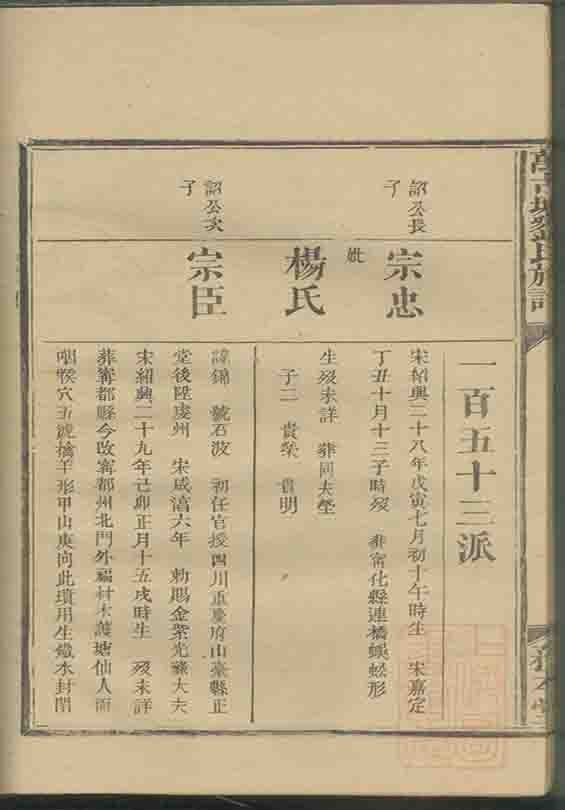 劉氏族
一百五十三派
詔公長
子
宗忠
宋紹興二十八年戊寅七月初十午時生 宋嘉定
丁丑十月十三子時歿 葬甯化縣連橋蜈蚣形
妣
楊氏
生歿未詳 葬同夫塋
子二 貴榮 貴明
詔公次
子
宗臣
諱錦 號石波 初任官授四川重慶府山臺縣正
堂後陞虔州 宋咸淳六年 勅賜金紫光祿大夫
宋紹興二十九年己卯正月十五戌時生 歿未詳
葬甯都縣今改甯都州北門外福村木護塘仙人面
咽喉穴五虎擒羊形甲山庚向此墳用生鐵水封閉